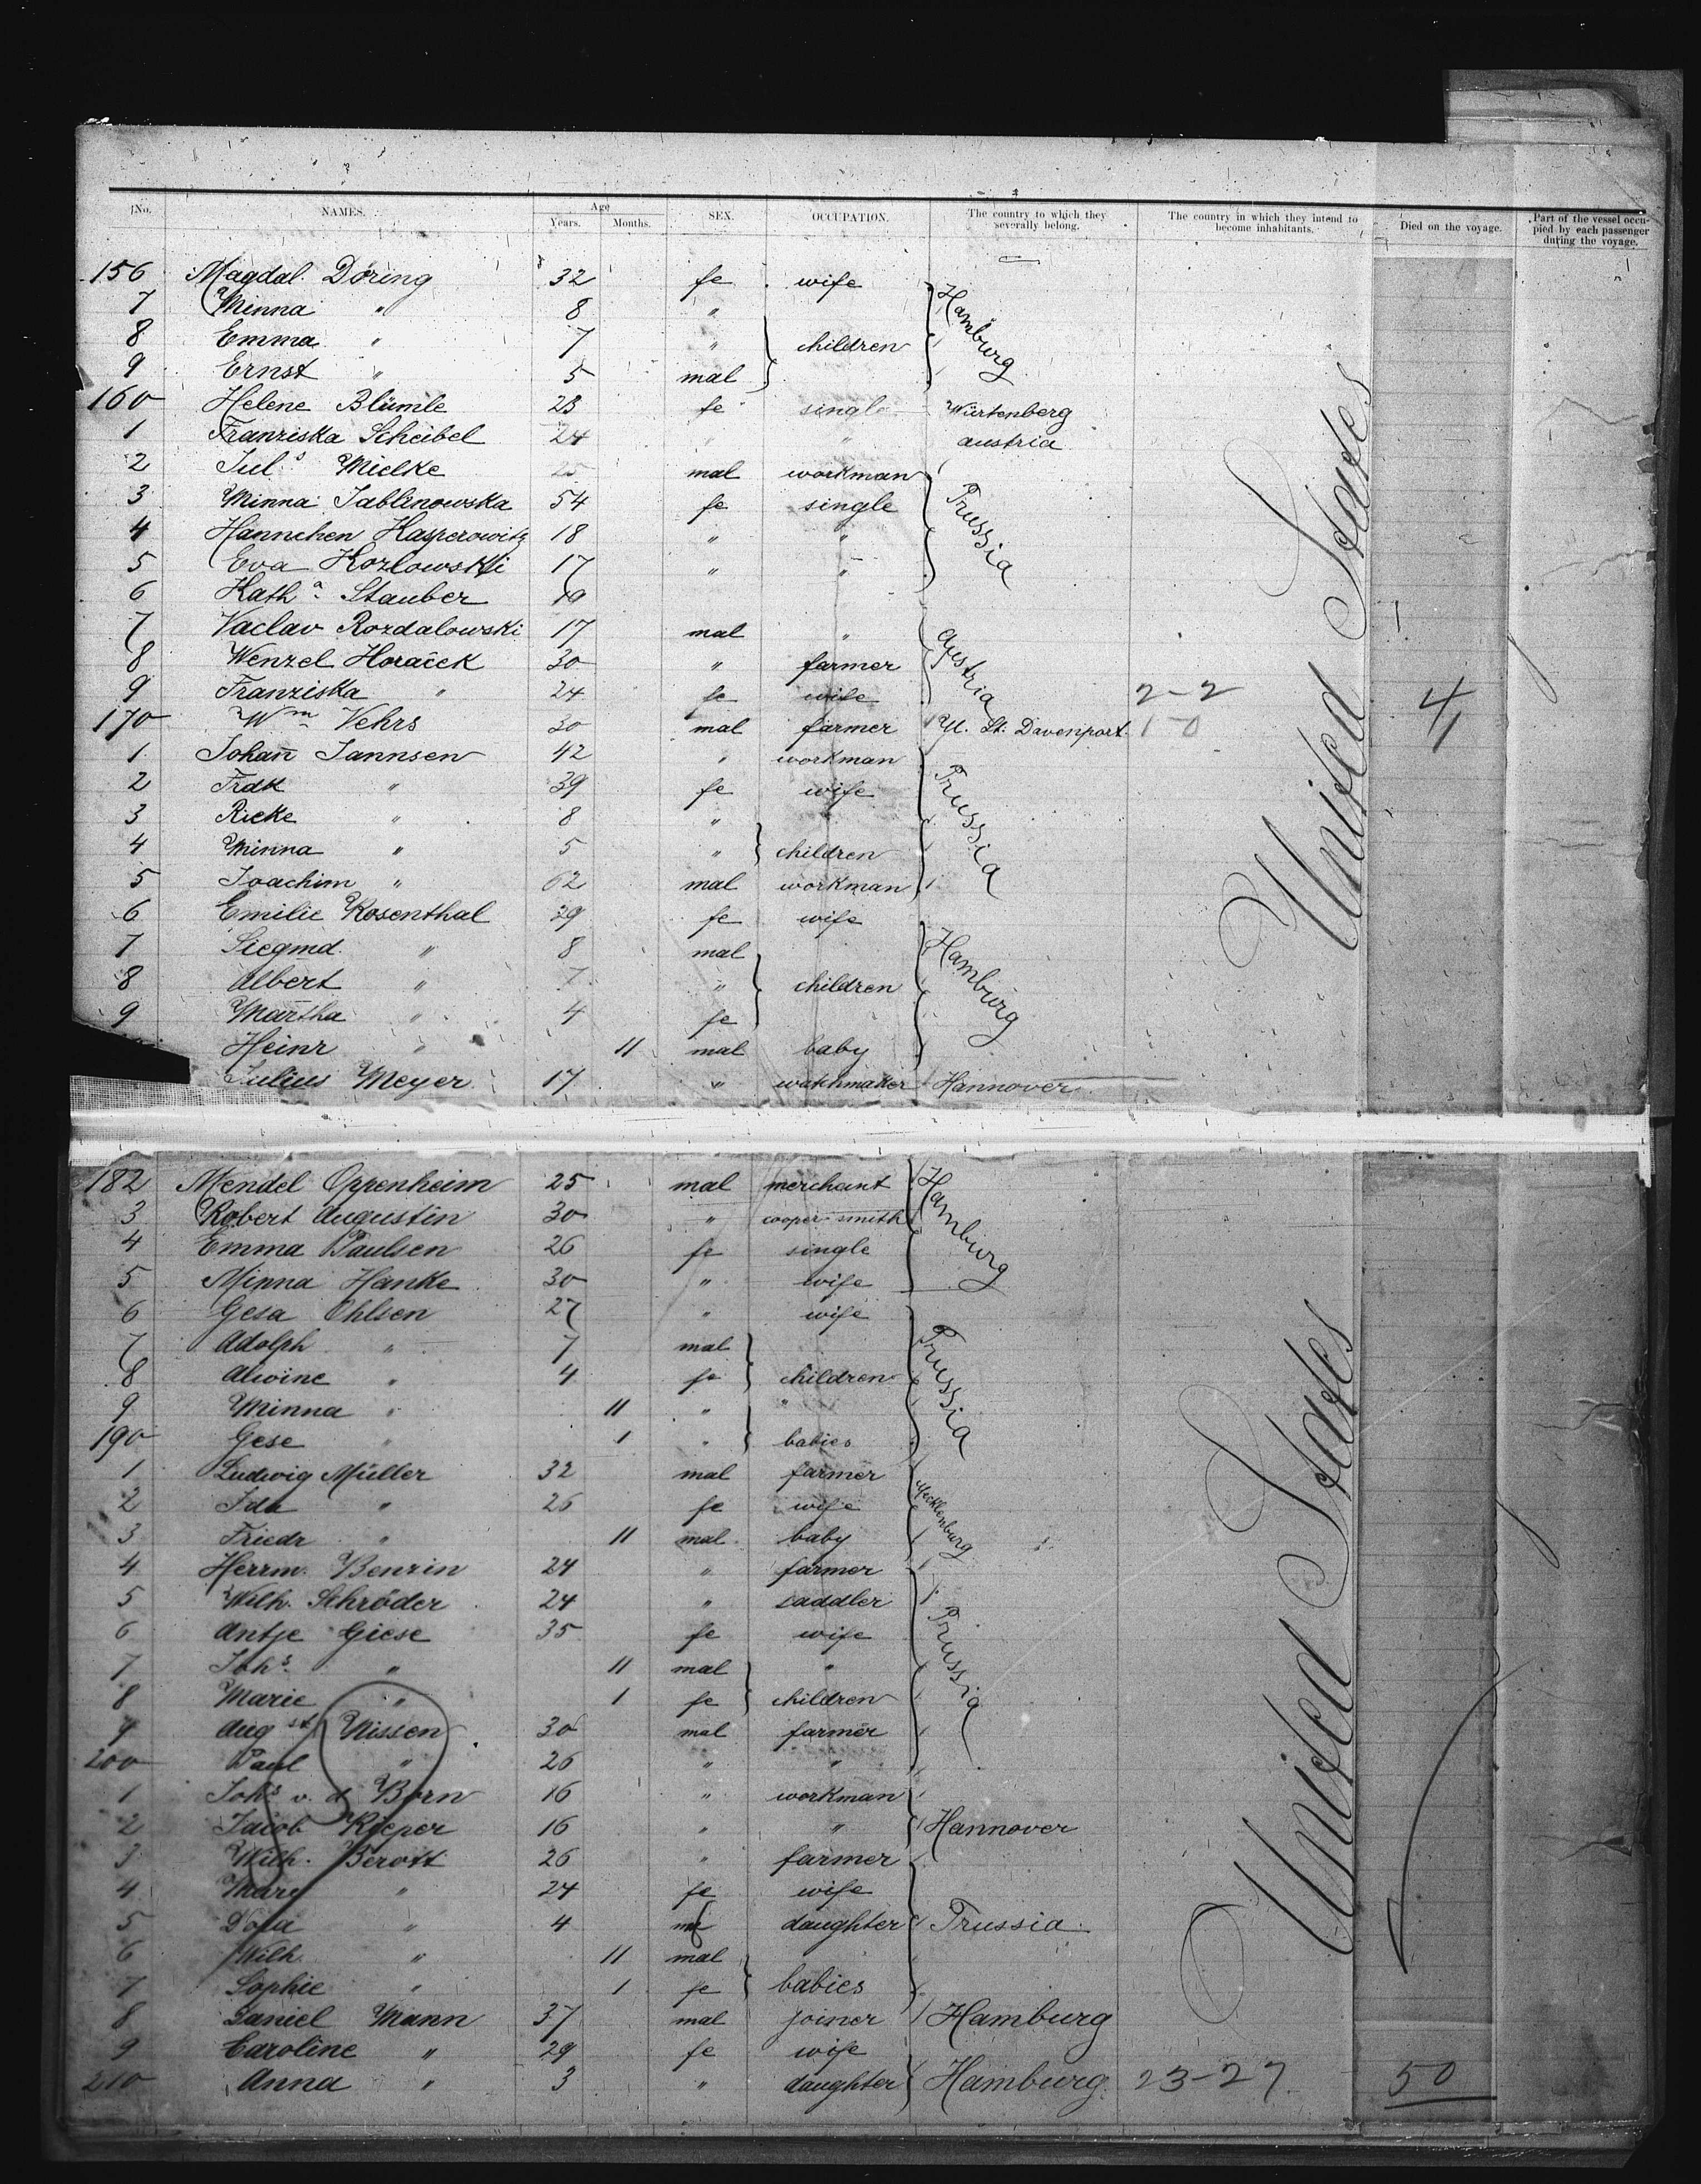 No. NAMES. Age Years. Months. SEX. OCCUPATION. The country to which they severally belong. The country in which they intend to become inhabitants. Died on the voyage. Part of the vessel occupied by each passenger during the voyage.
156 Magdal. Döring 32 fe wife
7 Minna " 8 " Hamburg
8 Emma " 7 " children
9 Ernst " 5 mal
160 Helene Blümle 23 fe single Würtenberg
1 Franziska Scheibel 24 " " austria
2 Jul.s Mielke 25 mal workman
3 Minna Jablinowska 54 fe single Prussia
4 Hannchen Kasperowitz 18 " "
5 Eva Kozlowski 17 " "
6 Kath.a Stauber 19
7 Vaclav Rozdalowski 17 mal " Austria
8 Wenzel Horaček 30 " farmer
9 Franziska " 24 fe wife 2-2 4
170 Wm Vehrs 30 mal farmer U. St. Davenport. 1-0 1
1 Johañ Jannsen 42 " workman
2 Frdk " 39 fe wife Prussia
3 Ricke " 8 "
4 Minna " 5 " children
5 Joachim " 62 mal workman
6 Emilie Rosenthal 29 fe wife
7 Siegmd. " 8 mal Hamburg
8 Albert " 7 " children
9 Martha " 4 fe
Heinr " 11 mal baby
Julius Meyer 17 " watchmaker Hannover
United States
182 Mendel Oppenheim 25 mal merchant Hamburg
3 Robert Augustin 30 " cooper-smith
4 Emma Paulsen 26 fe single
5 Minna Hanke 30 " wife
6 Gesa Ohlsen 27 " wife
7 Adolph " 7 mal Prussia
8 Alwine " 4 fe children
9 Minna " 11 " "
190 Gese " 1 " babies
1 Ludwig Müller 32 mal farmer Mecklenburg
2 Ida " 26 fe wife
3 Friedr " 11 mal baby
4 Herrm. Benzin 24 " farmer
5 Wilh. Schröder 24 " saddler Prussia
6 Antje Giese 35 fe wife
7 Joh.s " 11 mal "
8 Marie " 1 fe children
9 Augst Nissen 30 mal farmer
200 Paul " 26 " "
1 Johs v. d. Born 16 " workman
2 Jacob Rieper 16 " " Hannover
3 Wilh. Berott 26 " farmer
4 Mary " 24 fe wife
5 " 4 daughter Prussia
6 Wilh. " 11 mal
7 Sophie " 1 fe babies
8 Daniel Mann 37 mal joiner Hamburg
9 Caroline " 29 fe wife
210 Anna " 3 " daughter Hamburg. 23-27 50
United States